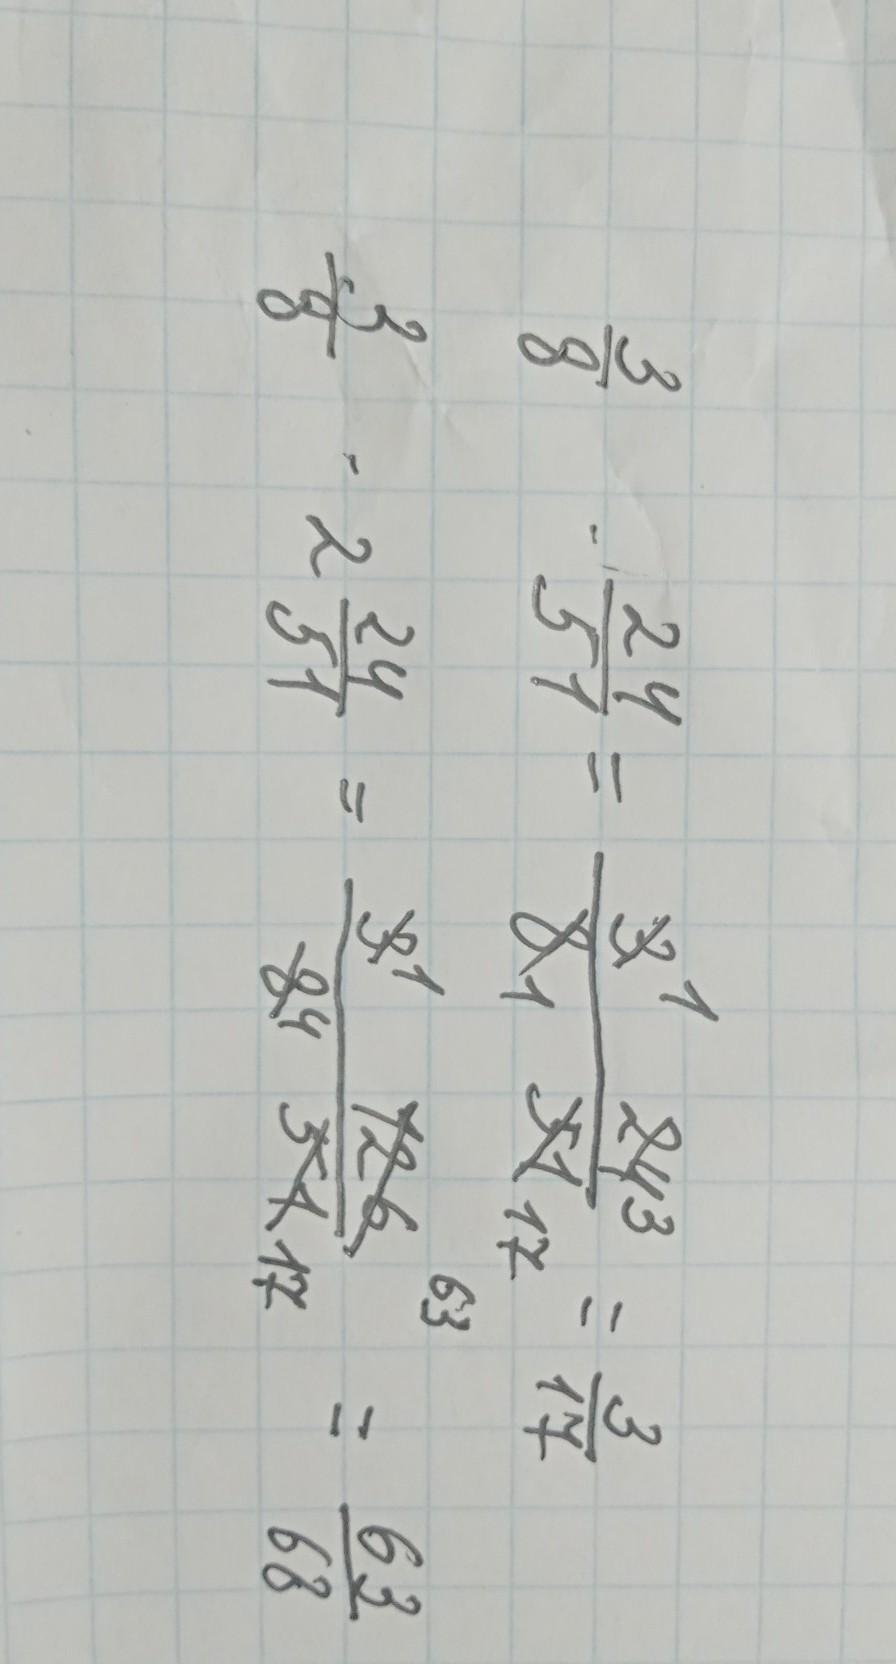 3/8 · 24/51 = (3̶ 1 2̶4̶ 3)/(8̶ 1 5̶1̶ 17) = 3/17
3/8 · 2 24/51 = (3̶ 1 1̶2̶6̶ 63)/(8̶ 4 5̶1̶ 17) = 63/68